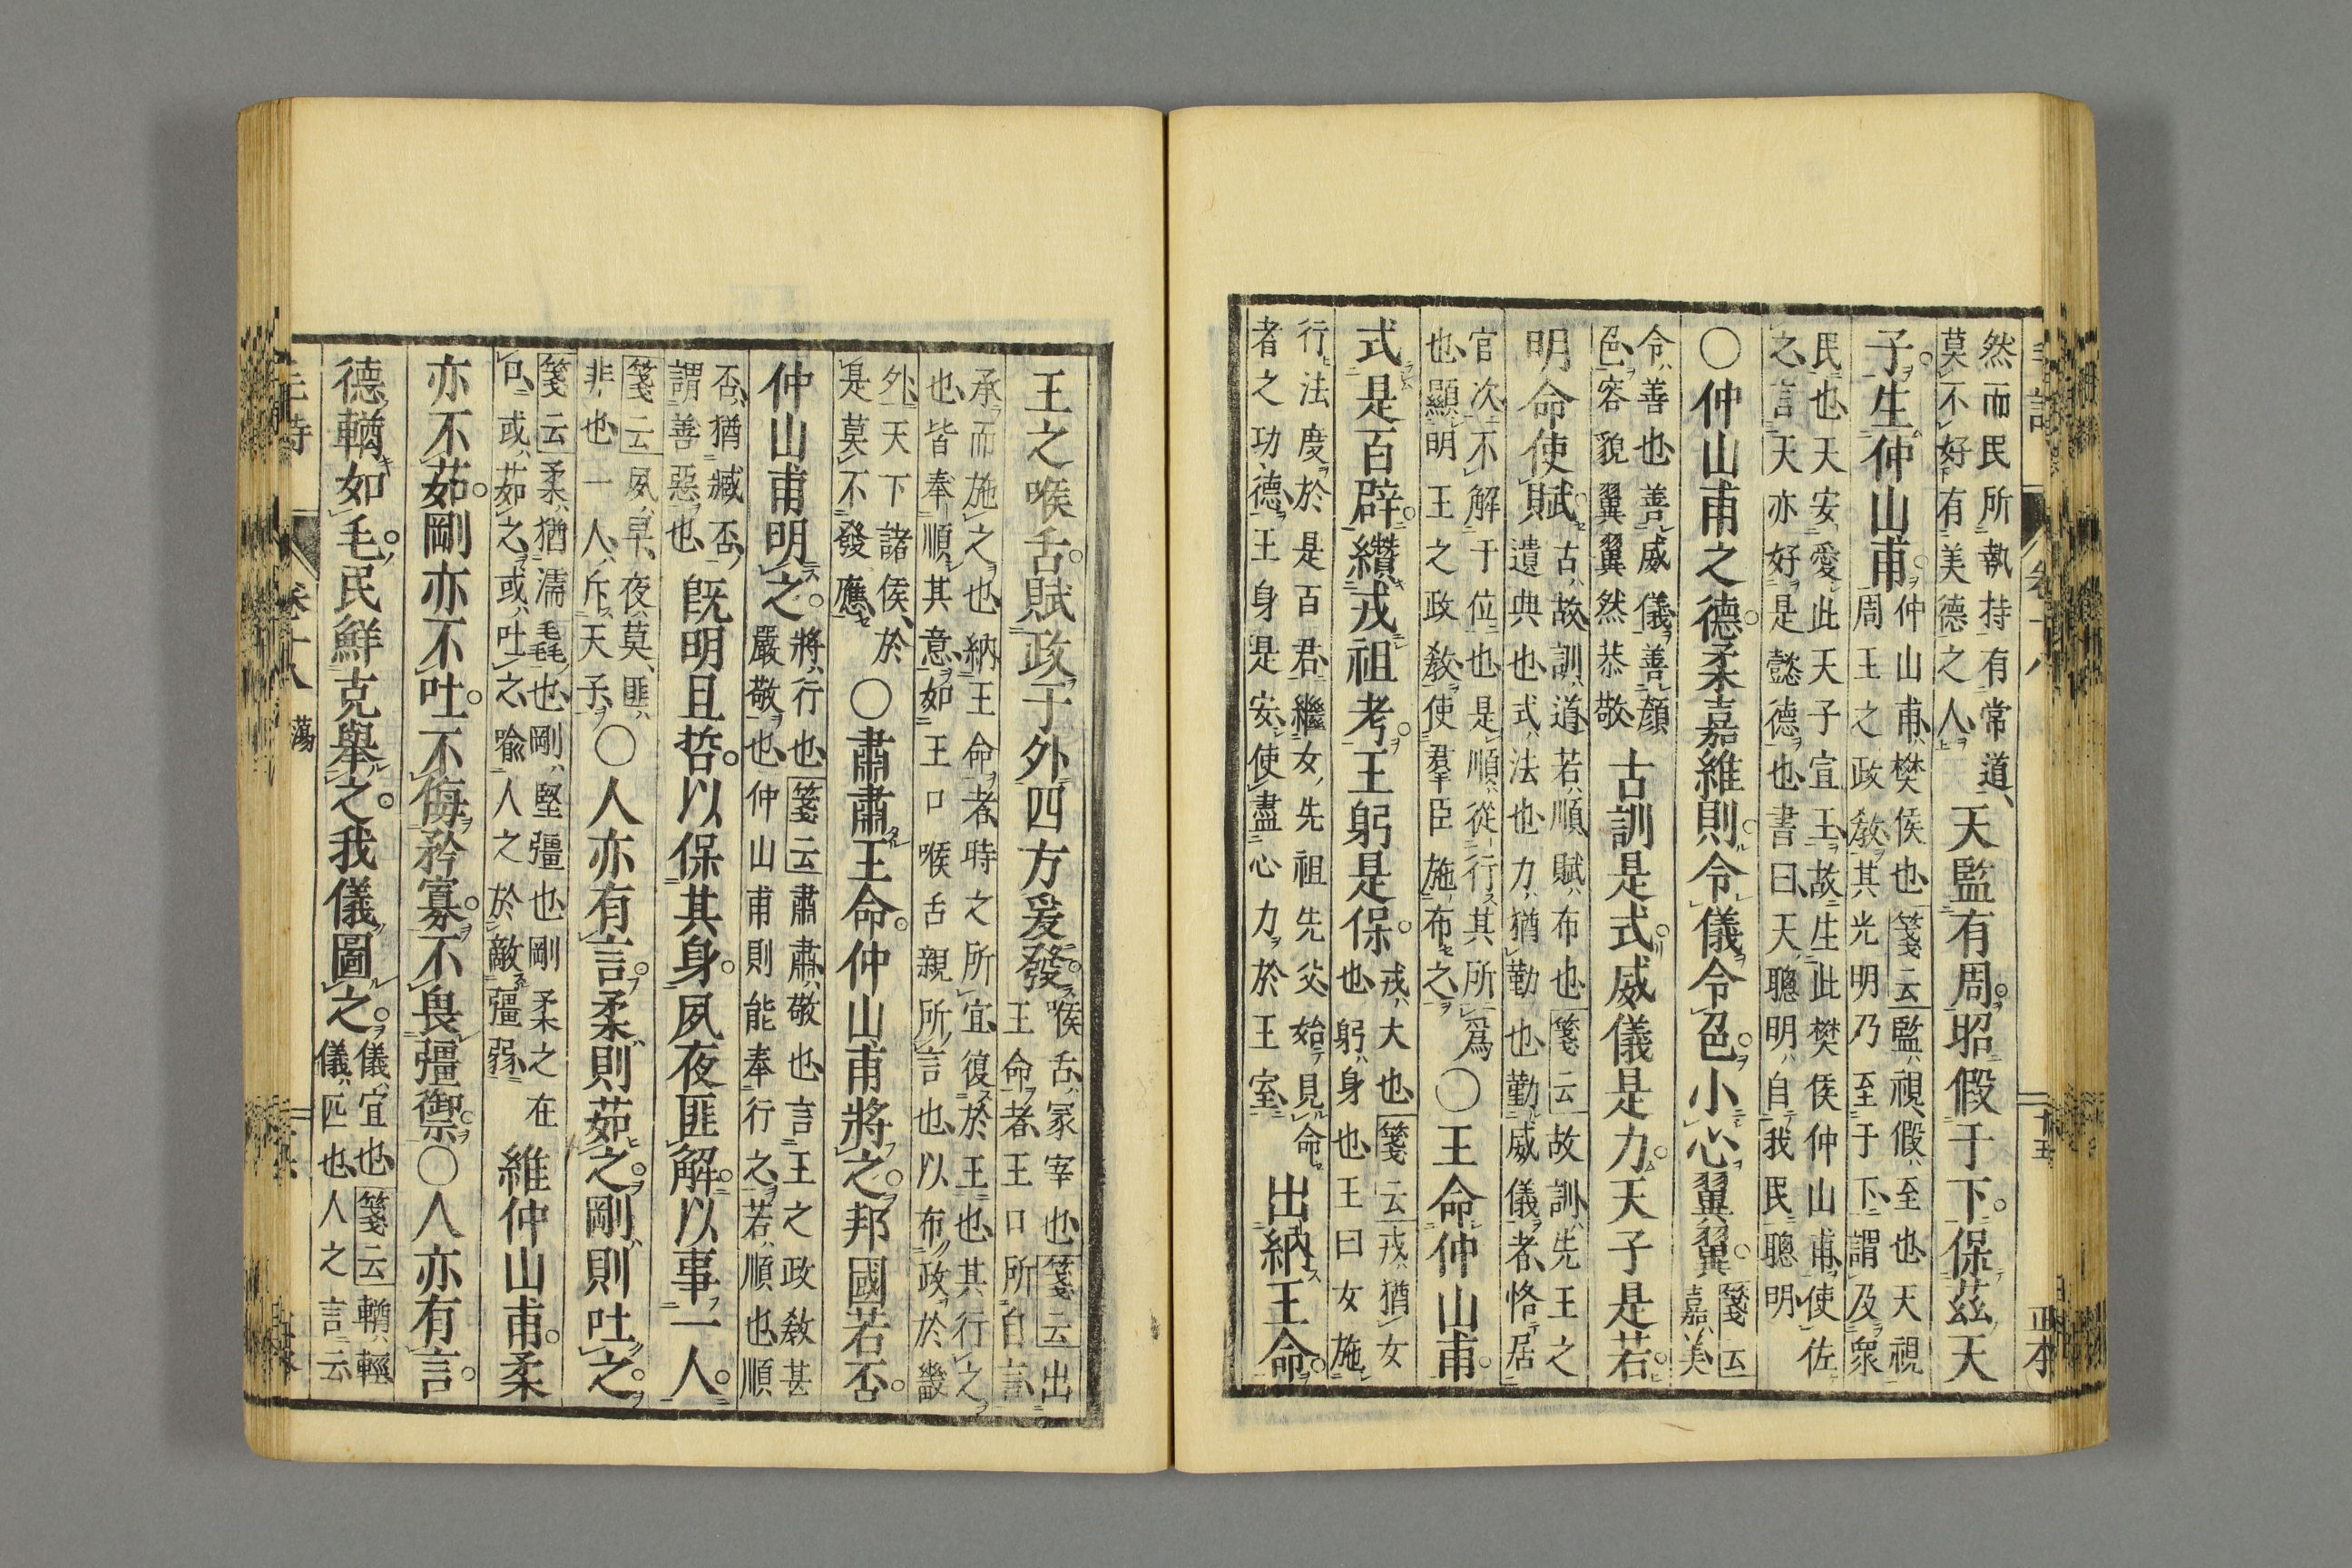 然而民所執持有常道
莫不好有美德之人
天監有周昭假于下保茲天
子生仲山甫
仲山甫樊侯也箋云監視假至也天視
周王之政教其光明乃至于下謂及衆
民也天安愛此天子宣王故生此樊侯仲山甫使佐
之言天亦好是懿德也書曰天聰明自我民聰明
○仲山甫之德柔嘉維則令儀令色小心翼翼
箋云
嘉美
令善也善威儀善顏
色容貌翼翼然恭敬
古訓是式威儀是力天子是若
明命使賦
古故訓道若順賦布也箋云故訓先王之
遺典也式法也力猶勤也勤威儀者恪居
官次不解于位也是順從行其所爲
也顯明王之政教使羣臣施布之
○王命仲山甫
式是百辟纘戎祖考王躬是保
戎大也箋云戎猶女
也躬身也王曰女施
行法度於是百君繼女先祖先父始見命
者之功德王身是安使盡心力於王室
出納王命
王之喉舌賦政于外四方爰發
喉舌冢宰也箋云出
王命者王口所自言
承而施之也納王命者時之所宜復於王也其行之
也皆奉順其意如王口喉舌親所言也以布政於畿
外天下諸侯於
是莫不發應
○肅肅王命仲山甫將之邦國若否
仲山甫明之
將行也箋云肅肅敬也言王之政教甚
嚴敬也仲山甫則能奉行之若順也順
否猶臧否
謂善惡也
既明且哲以保其身夙夜匪解以事一人
箋云夙早夜莫匪
非也一人斥天子
○人亦有言柔則茹之剛則吐之
箋云柔猶濡毳也剛堅彊也剛柔之在
口或茹之或吐之喻人之於敵彊弱
維仲山甫柔
亦不茹剛亦不吐不侮矜寡不畏彊禦○人亦有言
德輶如毛民鮮克舉之我儀圖之
儀宜也箋云輶輕
儀匹也人之言云
毛詩 卷十八 蕩